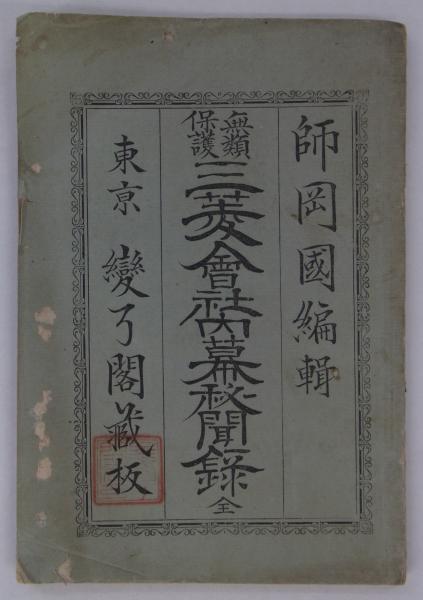 師岡國編輯
無類
保護
三菱會社内幕秘聞録 全
東京 變了閣藏板